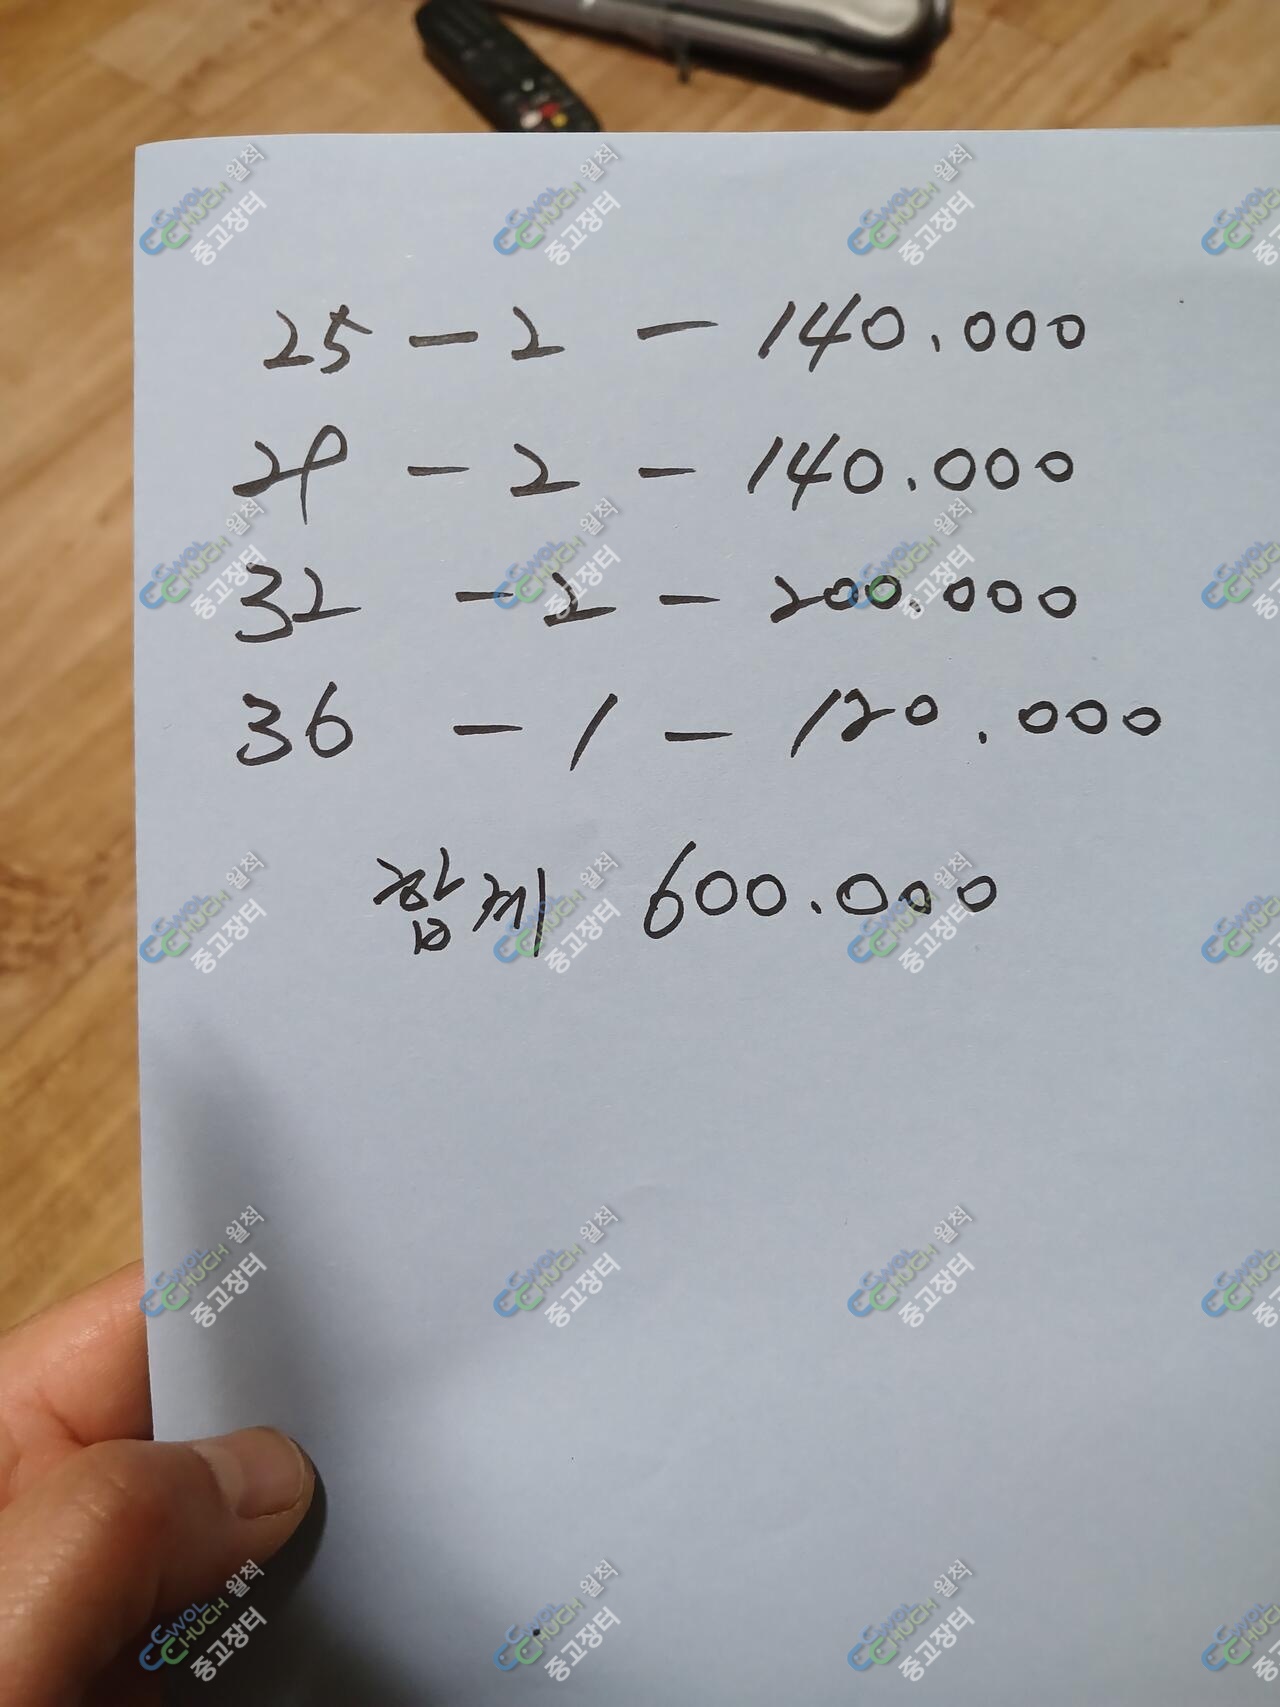 25 - 2 - 140.000
29 - 2 - 140.000
32 - 2 - 200.000
36 - 1 - 120.000
합계 600.000
CWOL CHUCH 월척 중고장터